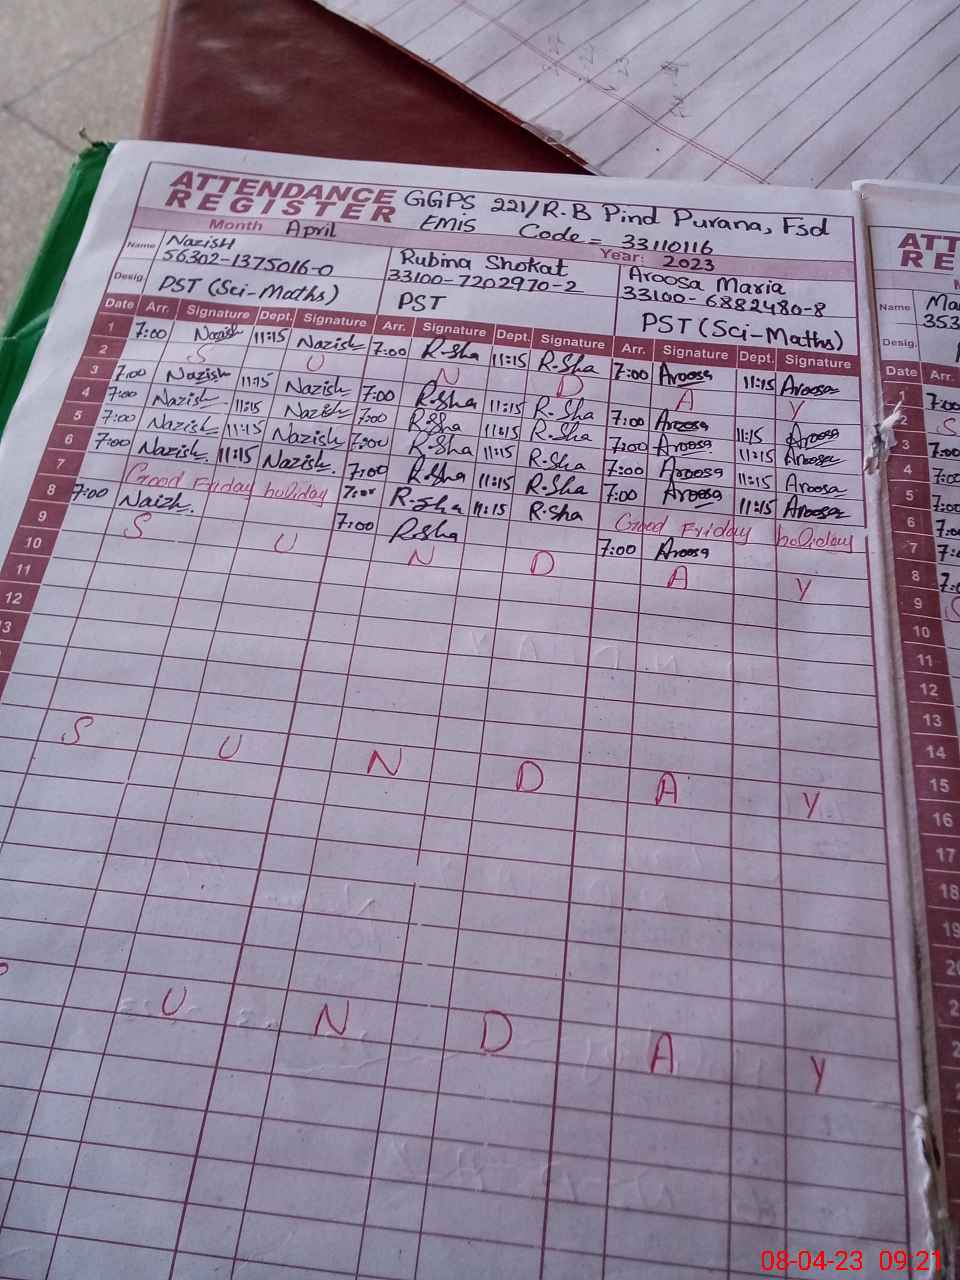 ATTENDANCE REGISTER GGPS 221/R.B Pind Purana, Fsd
Month April EMIS Code = 33110116
Year: 2023
Name Nazish Rubina Shokat Aroosa Maria
56302-1375016-0 33100-7202970-2 33100-6882480-8
Desig. PST (Sci-Maths) PST PST (Sci-Maths)
Date Arr. Signature Dept. Signature Arr. Signature Dept. Signature Arr. Signature Dept. Signature
1 7:00 Nazish 11:15 Nazish 7:00 R-Sha 11:15 R-Sha 7:00 Aroosa 11:15 Aroosa
2 S U N D A Y
3 7:00 Nazish 11:15 Nazish 7:00 R-Sha 11:15 R-Sha 7:00 Aroosa 11:15 Aroosa
4 7:00 Nazish 11:15 Nazish 7:00 R-Sha 11:15 R-Sha 7:00 Aroosa 11:15 Aroosa
5 7:00 Nazish 11:15 Nazish 7:00 R-Sha 11:15 R-Sha 7:00 Aroosa 11:15 Aroosa
6 7:00 Nazish. 11:15 Nazish. 7:00 R-Sha 11:15 R-Sha 7:00 Aroosa 11:15 Aroosa
7 Good Friday holiday 7:00 R-Sha 11:15 R-Sha Good Friday holiday
8 7:00 Naizh. 7:00 R-Sha 7:00 Aroosa
9 S U N D A Y
10
11
12
13
S U N D A Y
U N D A Y
ATT
RE
Name Ma
353
Desig.
Date Arr.
1 7:00
2 S
3 7:00
4 7:00
5 7:00
6 7:0
7 7:
8 7:0
9
10
11
12
13
14
15
16
17
18
19
20
08-04-23 09:21